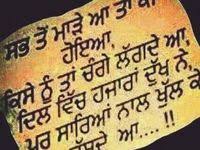 ਸਭ ਤੋਂ ਮਾੜੇ ਆ ਤਾਂ ਕੀ
ਹੋਇਆ,
ਕਿਸੇ ਨੂੰ ਤਾਂ ਚੰਗੇ ਲੱਗਦੇ ਆ,
ਦਿਲ ਵਿੱਚ ਹਜਾਰਾਂ ਦੁੱਖ ਨੇ,
ਪਰ ਸਾਰਿਆਂ ਨਾਲ ਖੁੱਲ ਕੇ
ਆ....!!